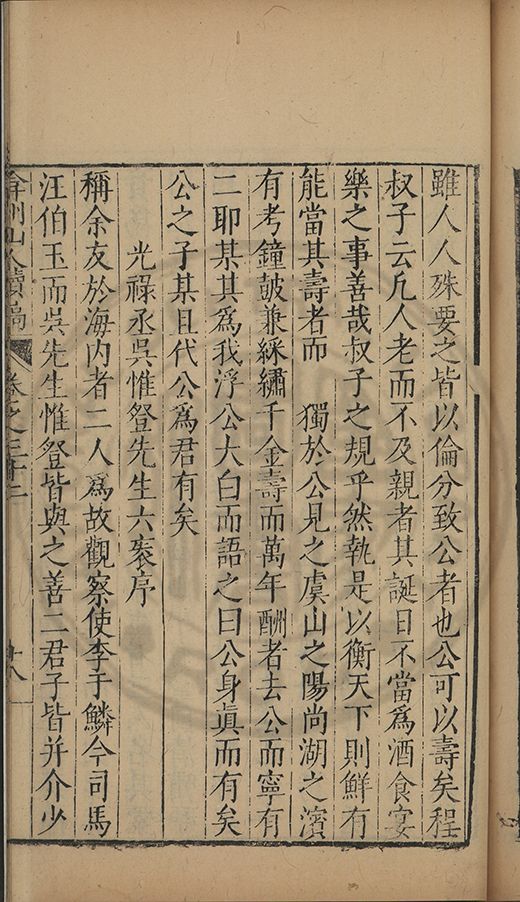 雖人人殊要之皆以倫分致公者也公可以壽矣程
叔子云凡人老而不及親者其誕日不當爲酒食宴
樂之事善哉叔子之規乎然執是以衡天下則鮮有
能當其壽者而 獨於公見之虞山之陽尚湖之濱
有考鐘皷兼綵繡千金壽而萬年酬者去公而寧有
二耶某其爲我浮公大白而語之曰公身眞而有矣
公之子某且代公爲君有矣
光祿丞吳惟登先生六袠序
稱余友於海內者二人爲故觀察使李于鱗今司馬
汪伯玉而吳先生惟登皆與之善二君子皆并介少
弇州山人續稿 卷之三十二 十八